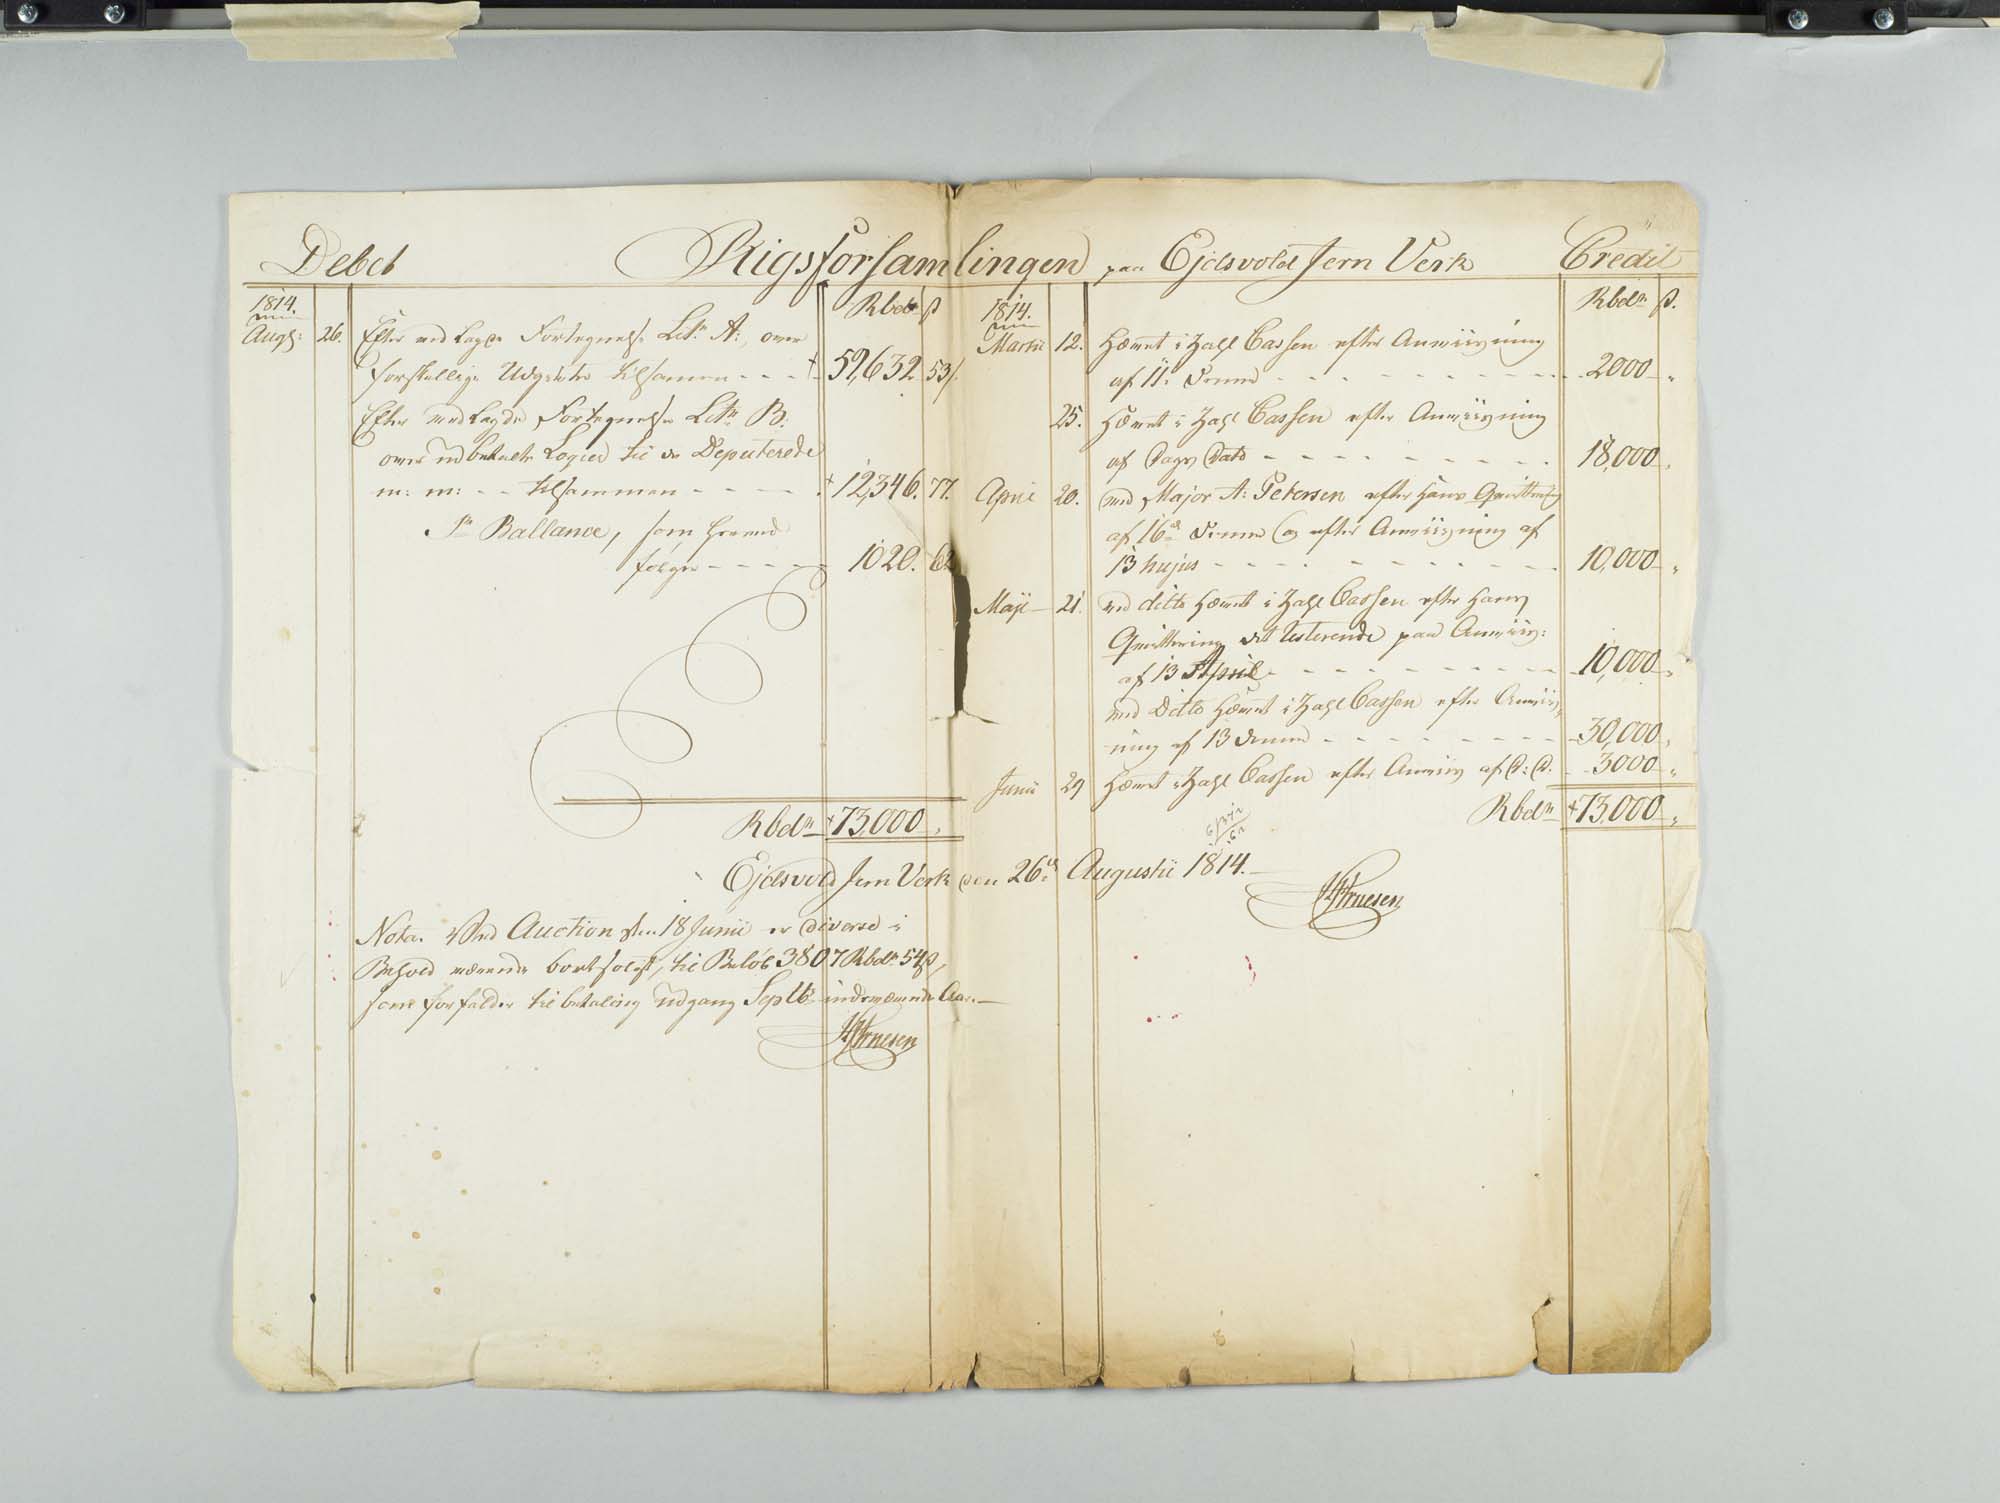 Debet Rigsforsamlingen paa Ejdsvold Jern Verk Credit
1814. Rbdr ß
Augs: 26. Efter vedlagde Fortegnelse Litr. A:, over
forskellige Udgivter tilsamen - - - † 59,632. 53/.
Efter vedlagde Fortegnelse Litr. B:
over udbetalt Logied til de Deputerede
m: m: - - tilsammen - - - - † 12,346. 77.
Pr Ballance, som herved
følger - - - - - 1020. 62
Rbdr † 73,000 „
1814. Rbdr ß.
Martii 12. Hævet i Zahl Cassen efter Anviisning
af 11. Denne - - - - - - - - - 2000 „
25. Hævet i Zahl Cassen efter Anviisning
af Dags Dato - - - - - - - - - 18,000 „
April 20. ved Major A: Petersen efter hans Qvittering
af 16de Denne og efter Anviisning af
13 hujus - - - - - - - - - - 10,000 „
Maji 21. ved ditto hævet i Zahl Cassen efter hans
Qvittering det resterende paa Anviis:
af 13 April - - - - - - - - - 10,000 „
ved Ditto hævet i Zahl Cassen efter Anviis-
ning af 13 Denne - - - - - - - - 30,000 „
Junii 29 Hævet i Zahl Cassen efter Anviis af D: D. - 3000 „
Rbdr † 73,000 „
Ejdsvold Jern Verk den 26de Augustii 1814.
Nota. Ved Auction den 18 Junii er diverse i
Behold værende bortsolgt, til Beløb 3807 Rbdr 54 ß,
som forfalder til betaling udgang Septbr indeværende Aar. —